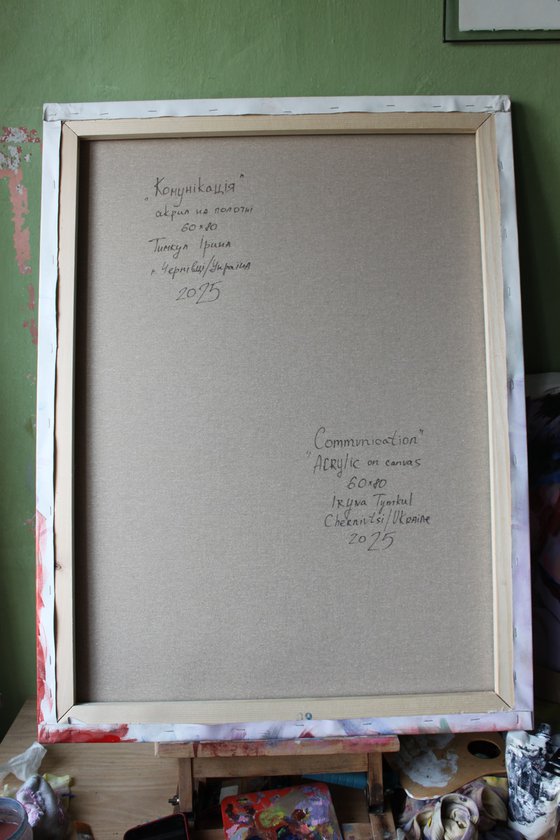 "Комунікація"
акрил на полотні
60×80
Тимкул Ірина
м. Чернівці/Україна
2025
"Communication"
Acrylic on canvas
60×80
Iryna Tymkul
Chernivtsi/Ukraine
2025